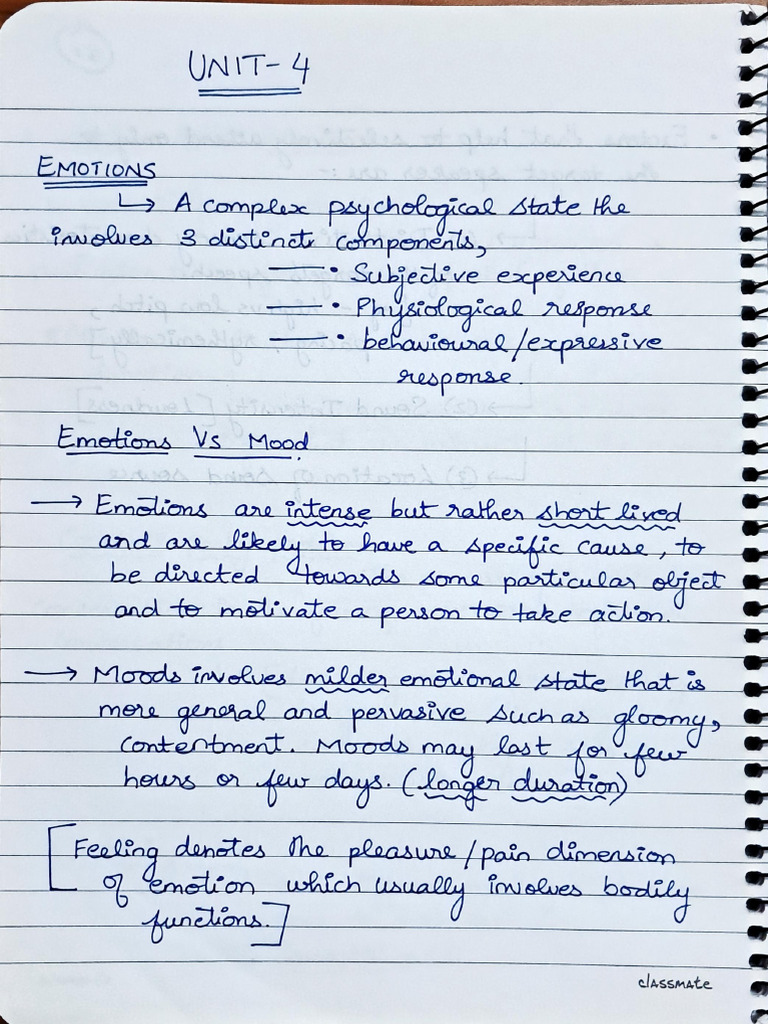 UNIT-4
EMOTIONS
↳ A complex psychological state the
involves 3 distinct components,
— • Subjective experience
— • Physiological response
— • behavioural/expressive
response.
Emotions Vs Mood
→ Emotions are intense but rather short lived
and are likely to have a specific cause, to
be directed towards some particular object
and to motivate a person to take action.
→ Moods involves milder emotional state that is
more general and pervasive such as gloomy,
contentment. Moods may last for few
hours or few days. (longer duration)
[Feeling denotes the pleasure/pain dimension
of emotion which usually involves bodily
functions.]
classmate